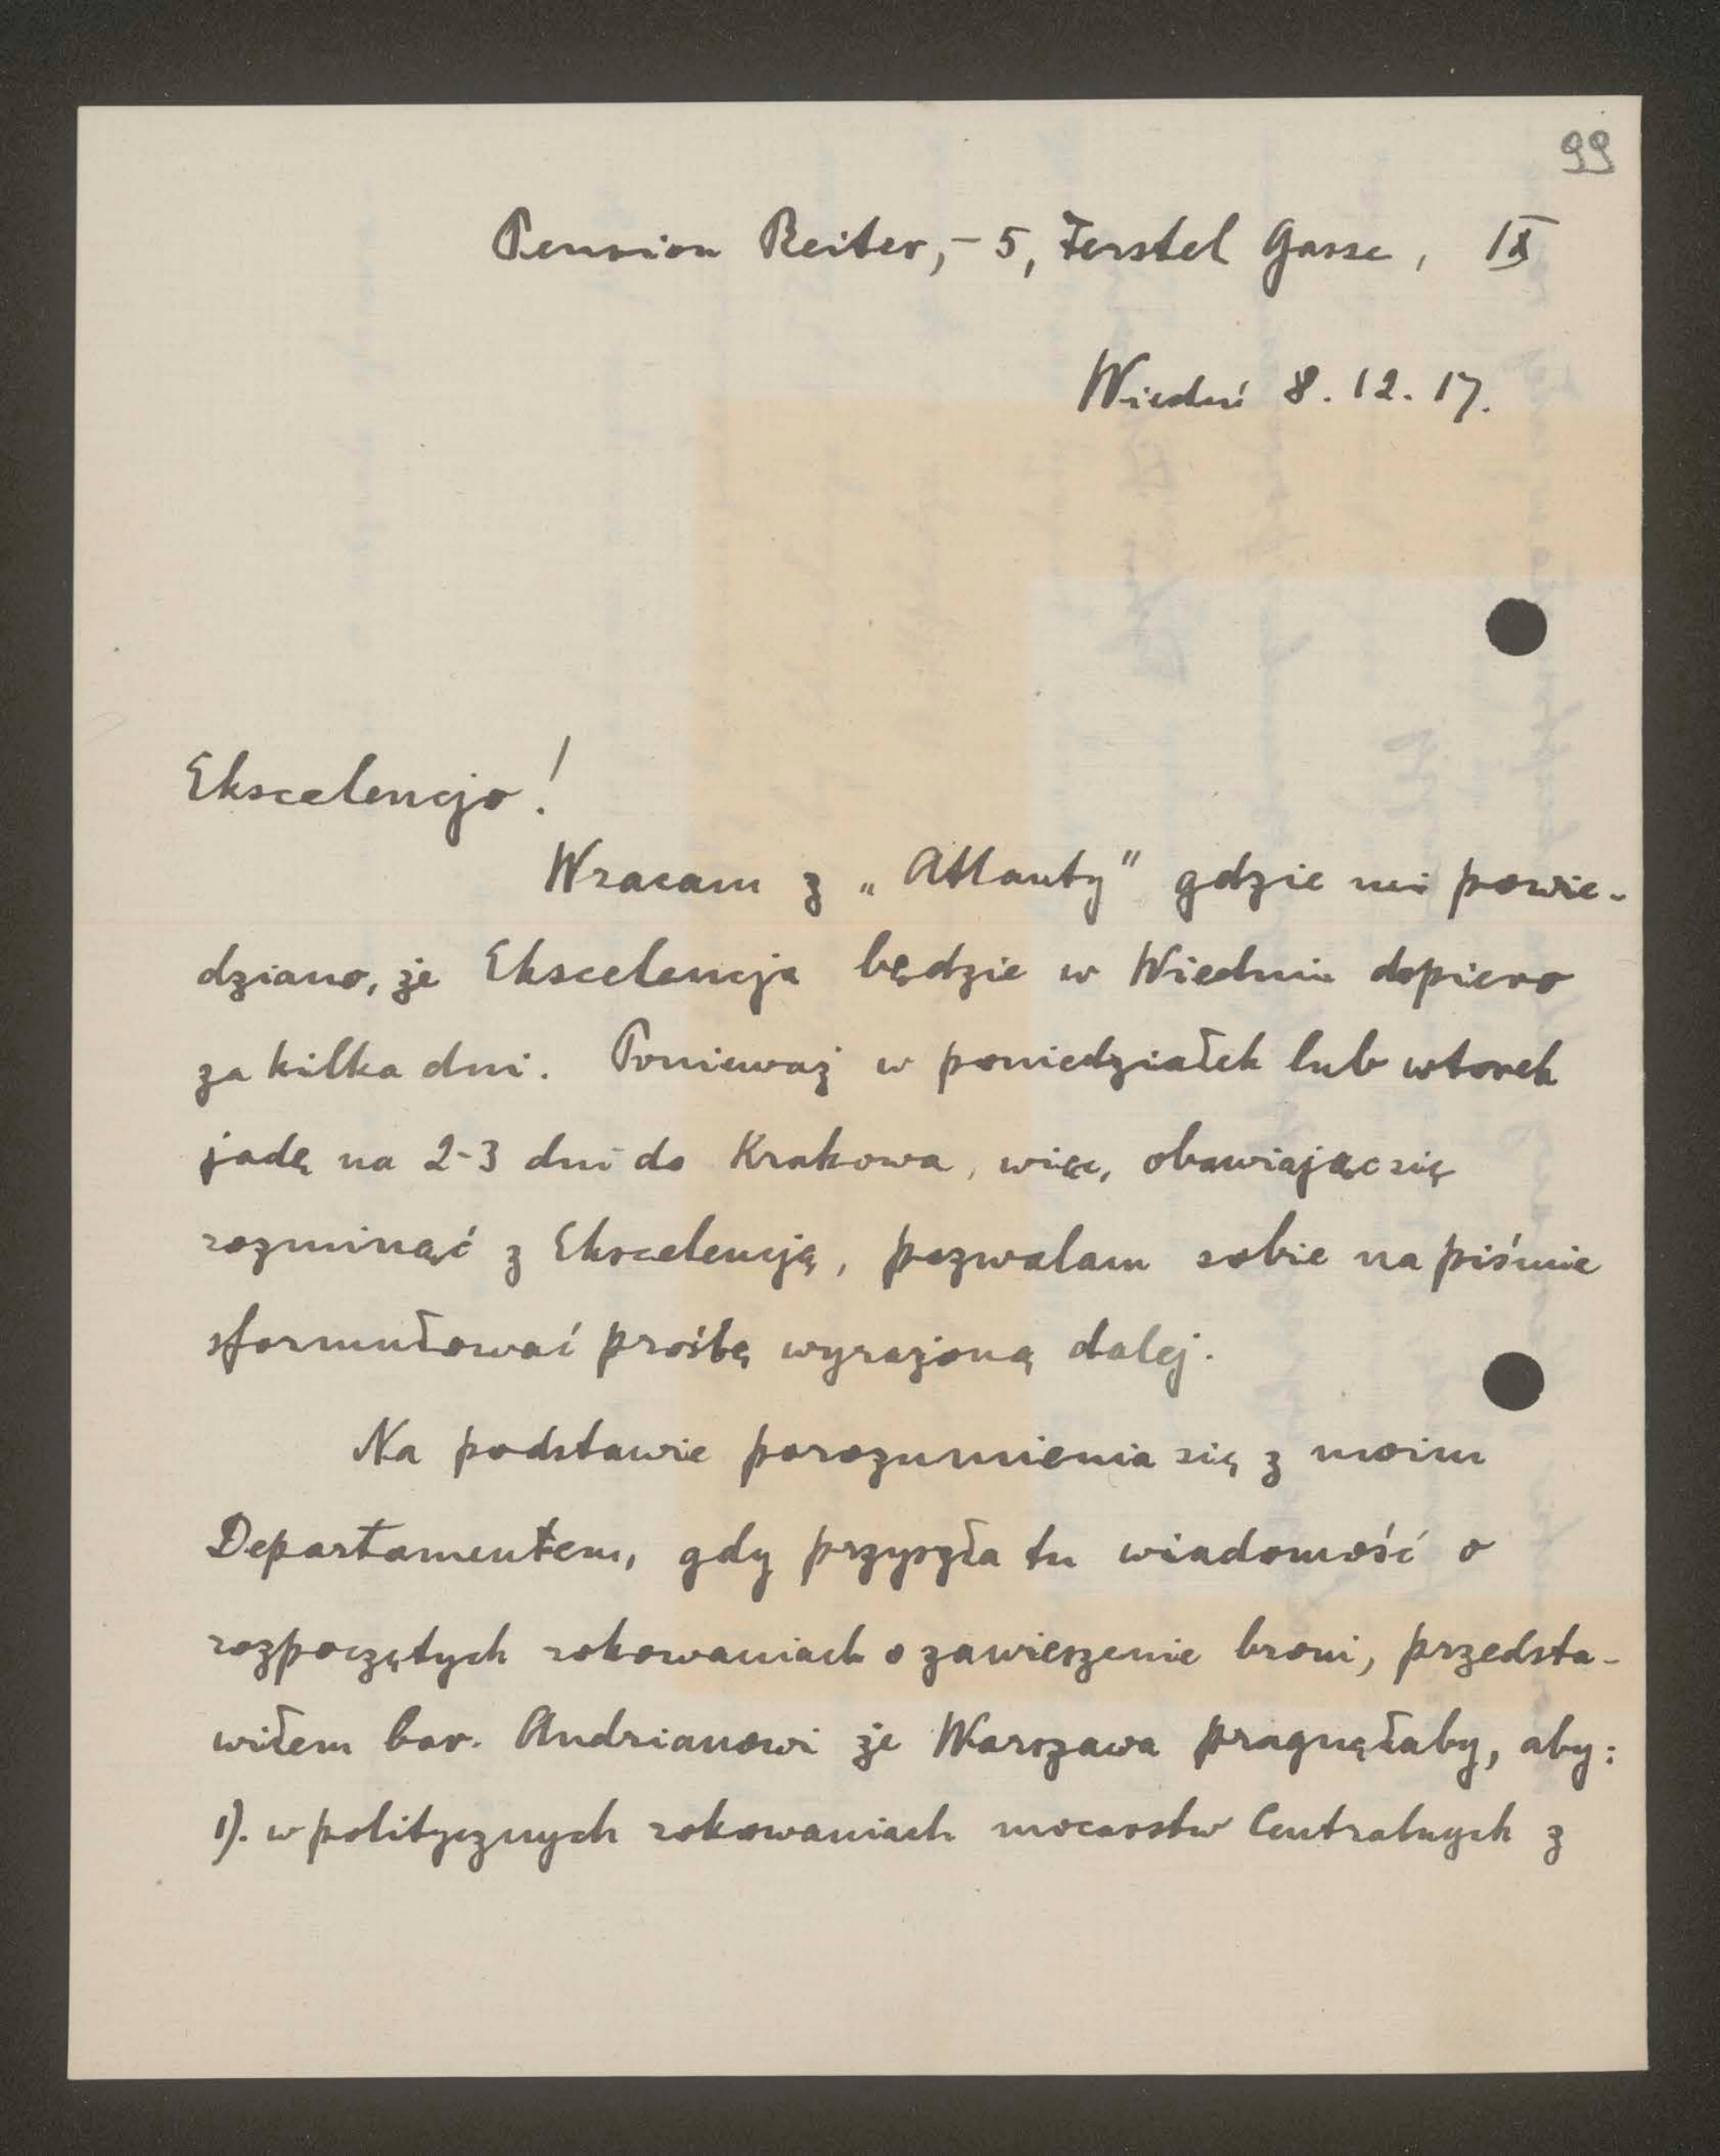 99
Pension Reiter, - 5, Ferstel Gasse, IX
Wiedeń 8.12.17.
Ekscelencjo!
Wracam z „Atlanty" gdzie mi powie-
dziano, że Ekscelencja będzie w Wiedniu dopiero
za kilka dni. Ponieważ w poniedziałek lub wtorek
jadę na 2-3 dni do Krakowa, więc, obawiając się
rozminąć z Ekscelencją, pozwalam sobie na piśmie
sformułować prośbę wyrażoną dalej.
Na podstawie porozumienia się z moim
Departamentem, gdy przyszła tu wiadomość o
rozpoczętych rokowaniach o zawieszenie broni, przedsta-
wiłem bar. Andrianowi że Warszawa pragnęłaby, aby:
1). w politycznych rokowaniach mocarstw Centralnych z